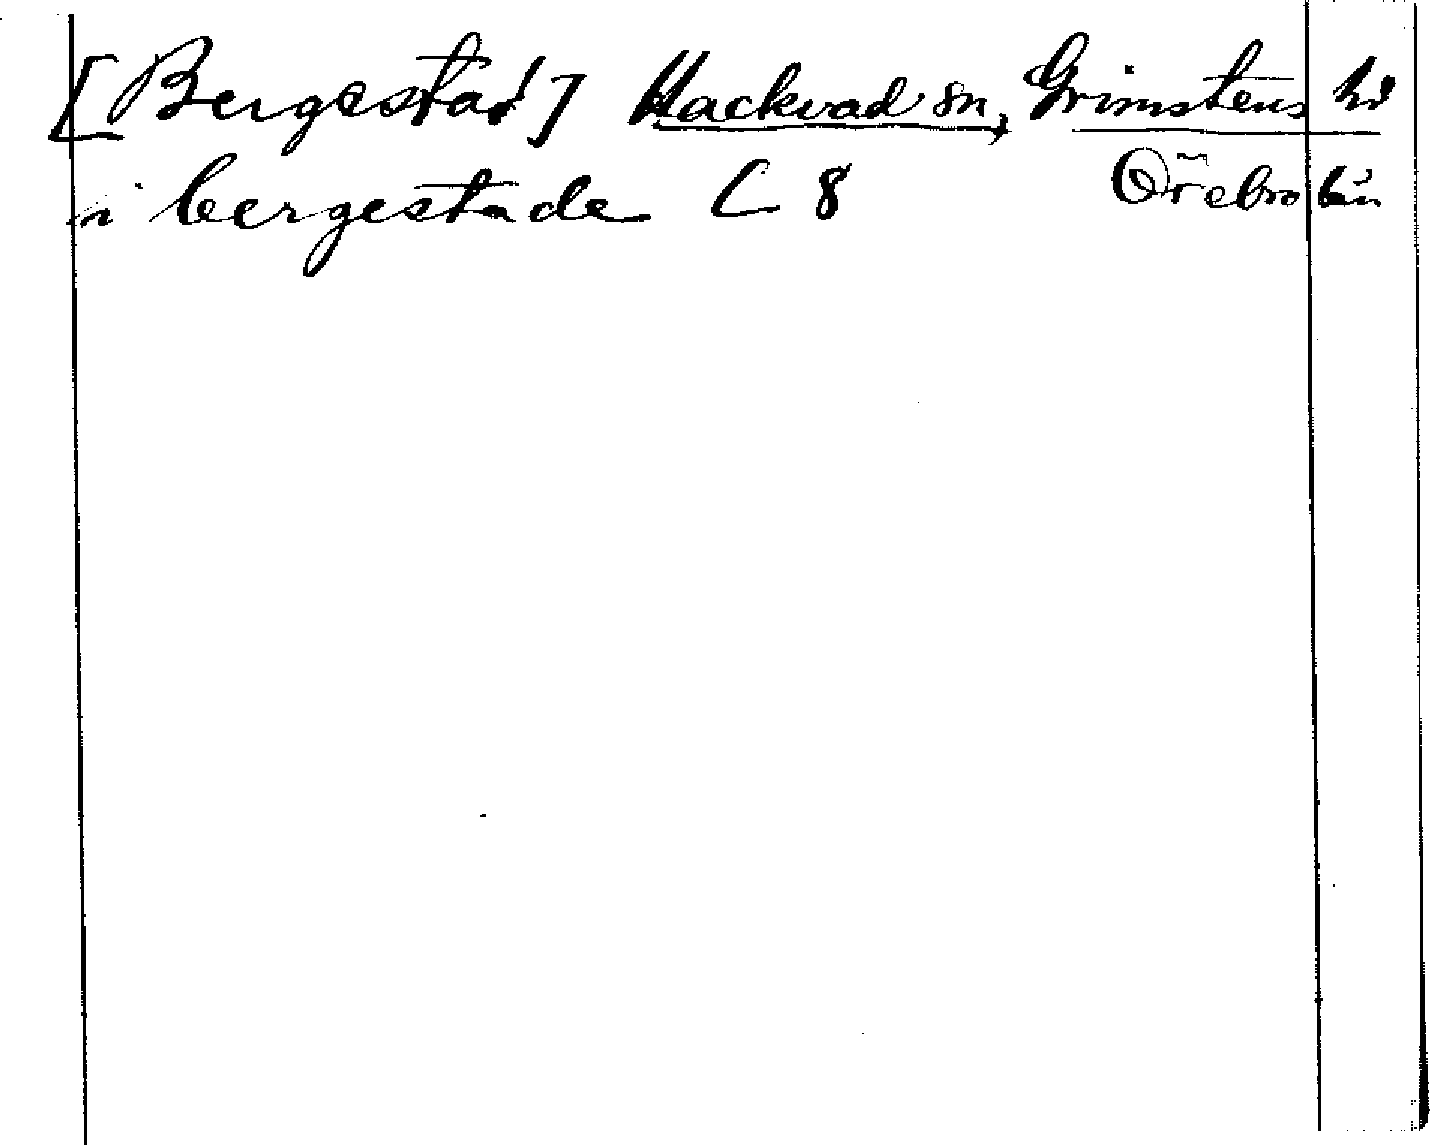 [Bergestad] Hackvad sn, Grimstens hd
i bergestade C 8 Örebro län